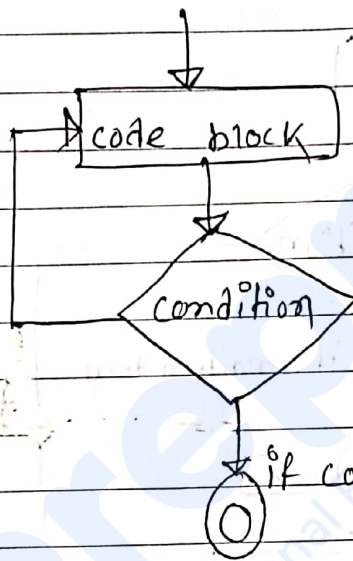 code block
condition
if co